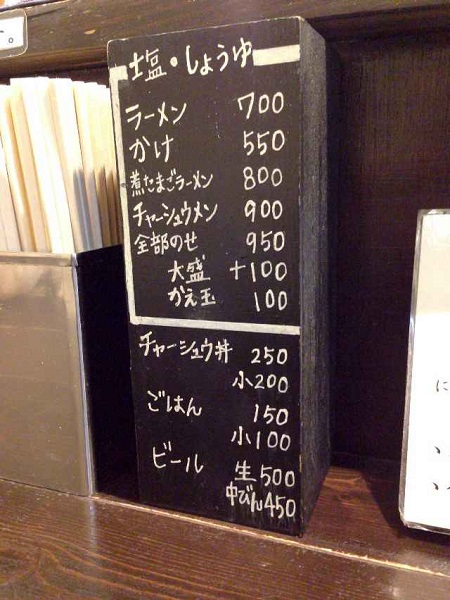 す。
塩・しょうゆ
ラーメン 700
かけ 550
煮たまごラーメン 800
チャーシュウメン 900
全部のせ 950
大盛 +100
かえ玉 100
チャーシュウ丼 250
小200
ごはん 150
小100
ビール 生500
中びん450
に